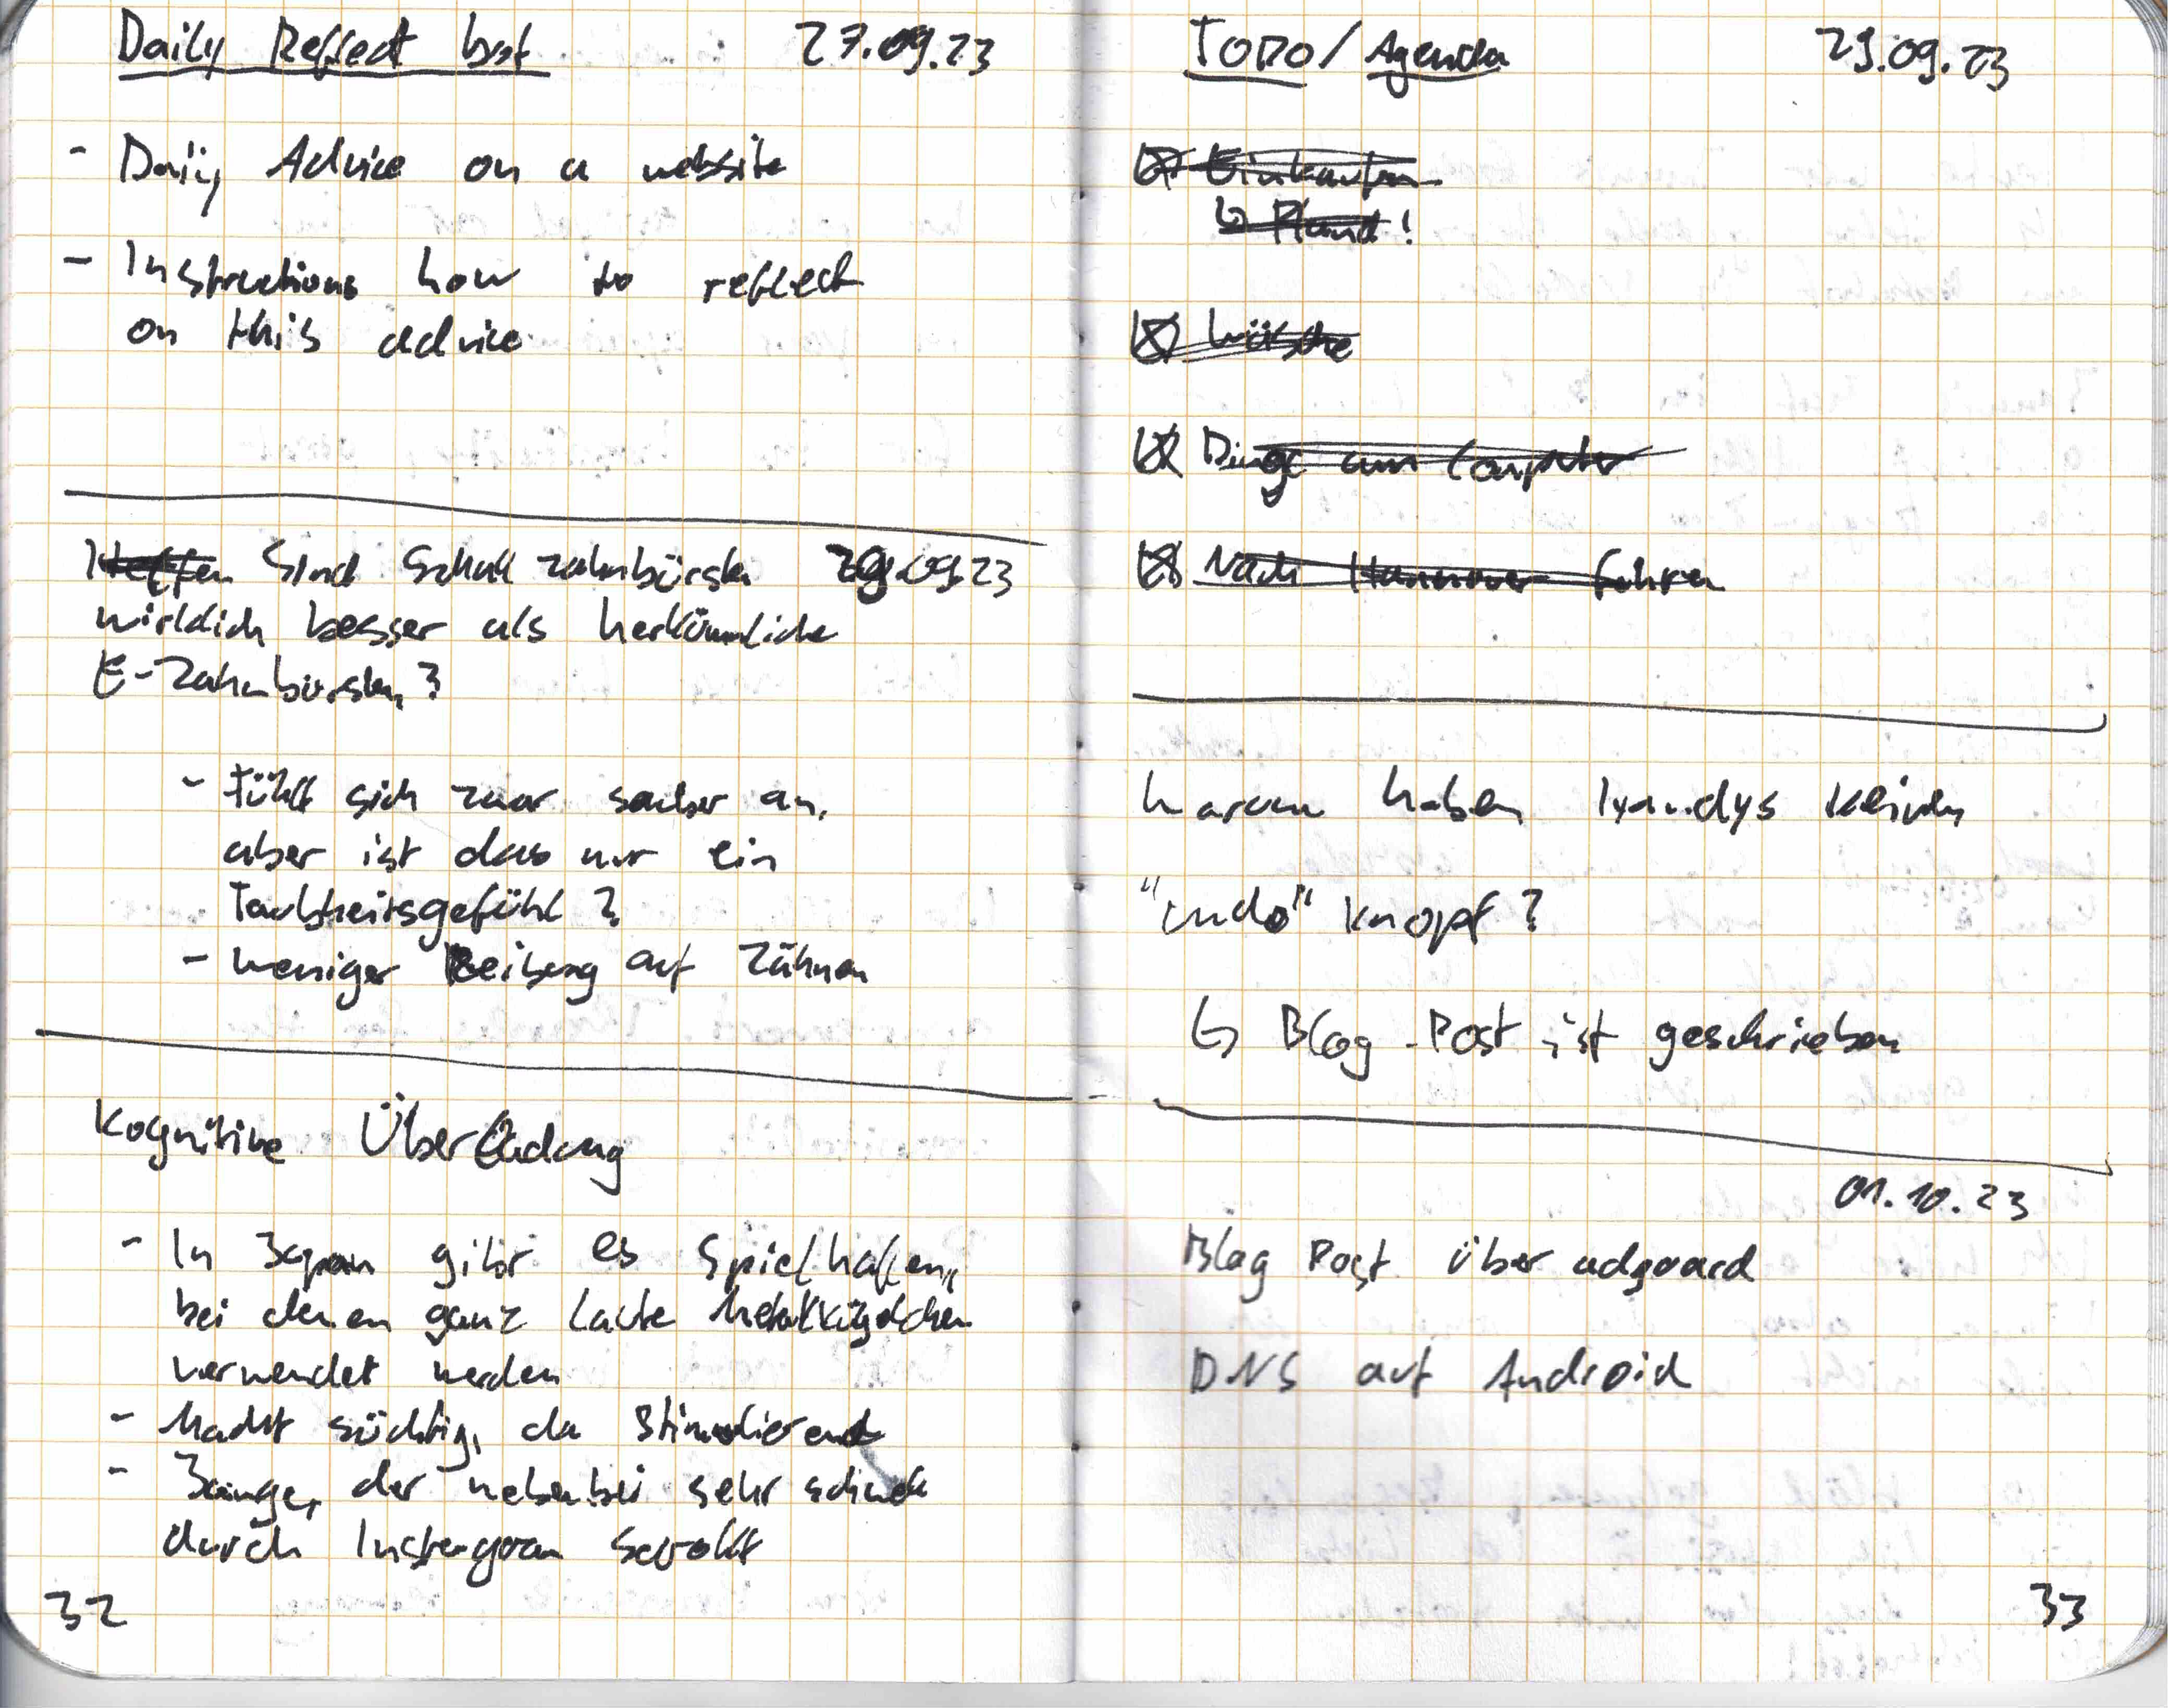 Daily Reflect bot 27.09.23
- Daily Advice on a website
- Instructions how to reflect
on this advice
Helfen Sind Schall zahnbürsten 29.09.23
wirklich besser als herkömmliche
E-Zahnbürsten?
- Fühlt sich zwar sauber an,
aber ist das nur ein
Taubheitsgefühl?
- weniger Reibung auf Zähnen
Kognitive Überladung
- In Japan gibt es Spielhallen,
bei denen ganz laute Metallkügelchen
verwendet werden
- Macht süchtig, da Stimulierend
- Junge, der nebenbei sehr schnell
durch Instagram scrollt
32
TODO/Agenda 29.09.23
☒ Einkaufen
↳ Pfand!
☒ Wäsche
☒ Dinge am Computer
☒ Nach Hannover fahren
Warum haben Handys keinen
"undo" Knopf?
↳ Blog-Post ist geschrieben
01.10.23
Blog Post über adguard
DNS auf Android
33